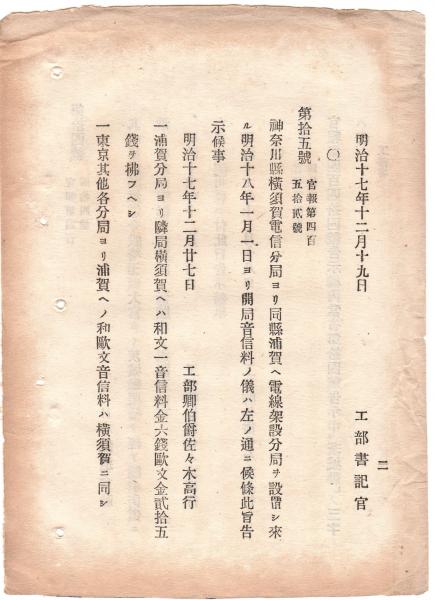 二
明治十七年十二月十九日
工部書記官
〇
第拾五號 官報第四百五拾貳號
神奈川縣橫須賀電信分局ヨリ同縣浦賀ヘ電線架設分局ヲ設置シ來
ル明治十八年一月一日ヨリ開局音信料ノ儀ハ左ノ通ニ候條此旨告
示候事
明治十七年十二月廿七日
工部卿伯爵佐々木高行
一浦賀分局ヨリ隣局橫須賀ヘハ和文一音信料金六錢歐文金貳拾五
錢ヲ拂フヘシ
一東京其他各分局ヨリ浦賀ヘノ和歐文音信料ハ橫須賀ニ同シ